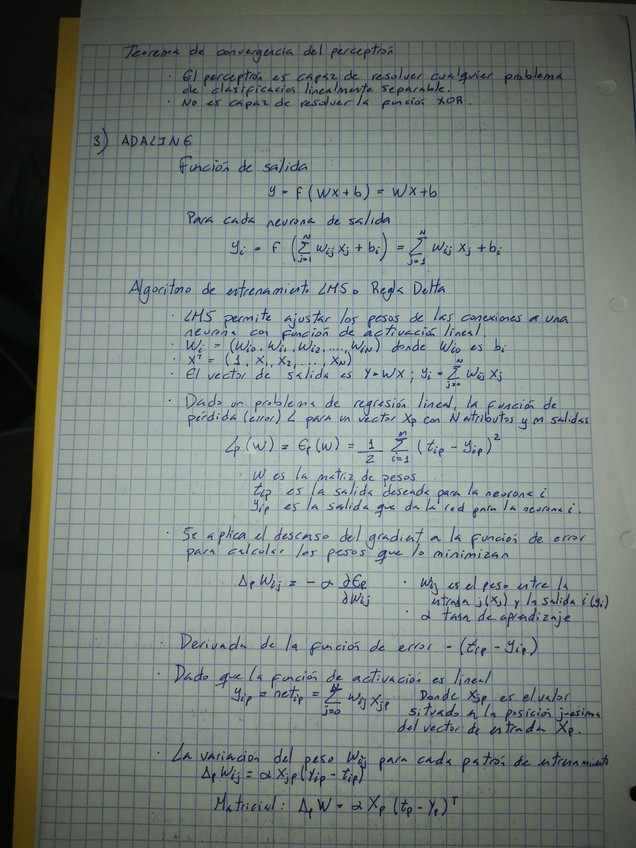 Teorema de convergencia del perceptrón
· El perceptrón es capaz de resolver cualquier problema
de clasificación linealmente separable.
· No es capaz de resolver la función XOR.
3) ADALINE
Función de salida
y = f(WX+b) = WX+b
Para cada neurona de salida
y_i = f (∑_{j=1}^{N} w_ij x_j + b_i) = ∑_{j=1}^{N} w_ij x_j + b_i
Algoritmo de entrenamiento LMS o Regla Delta
· LMS permite ajustar los pesos de las conexiones a una
neurona con función de activación lineal.
· W_i = (w_i0, w_i1, w_i2, ..., w_iN) donde w_i0 es b_i
· X^T = (1, x_1, x_2, ..., x_N)
· El vector de salida es Y=WX; y_i = ∑_{j=0}^{N} w_ij x_j
· Dado un problema de regresión lineal, la función de
pérdida (error) L para un vector X_p con N atributos y m salidas
L_p(W) = E_p(W) = 1/2 ∑_{i=1}^{m} (t_ip - y_ip)^2
· W es la matriz de pesos
t_ip es la salida deseada para la neurona i
y_ip es la salida que da la red para la neurona i.
· Se aplica el descenso del gradient a la función de error
para calcular los pesos que lo minimizan
Δ_p w_ij = -α ∂E_p/∂w_ij
· w_ij es el peso entre la
entrada j (x_j) y la salida i (y_i)
· α tasa de aprendizaje
· Derivada de la función de error - (t_ip - y_ip)
· Dado que la función de activación es lineal
y_ip = net_ip = ∑_{j=0}^{N} w_ij x_jp
Donde x_jp es el valor
situado a la posición j-esima
del vector de entrada X_p.
· La variación del peso w_ij para cada patrón de entrenamiento
Δ_p w_ij = α x_jp (y_ip - t_ip)
Matricial: Δ_p W = α X_p (t_p - y_p)^T